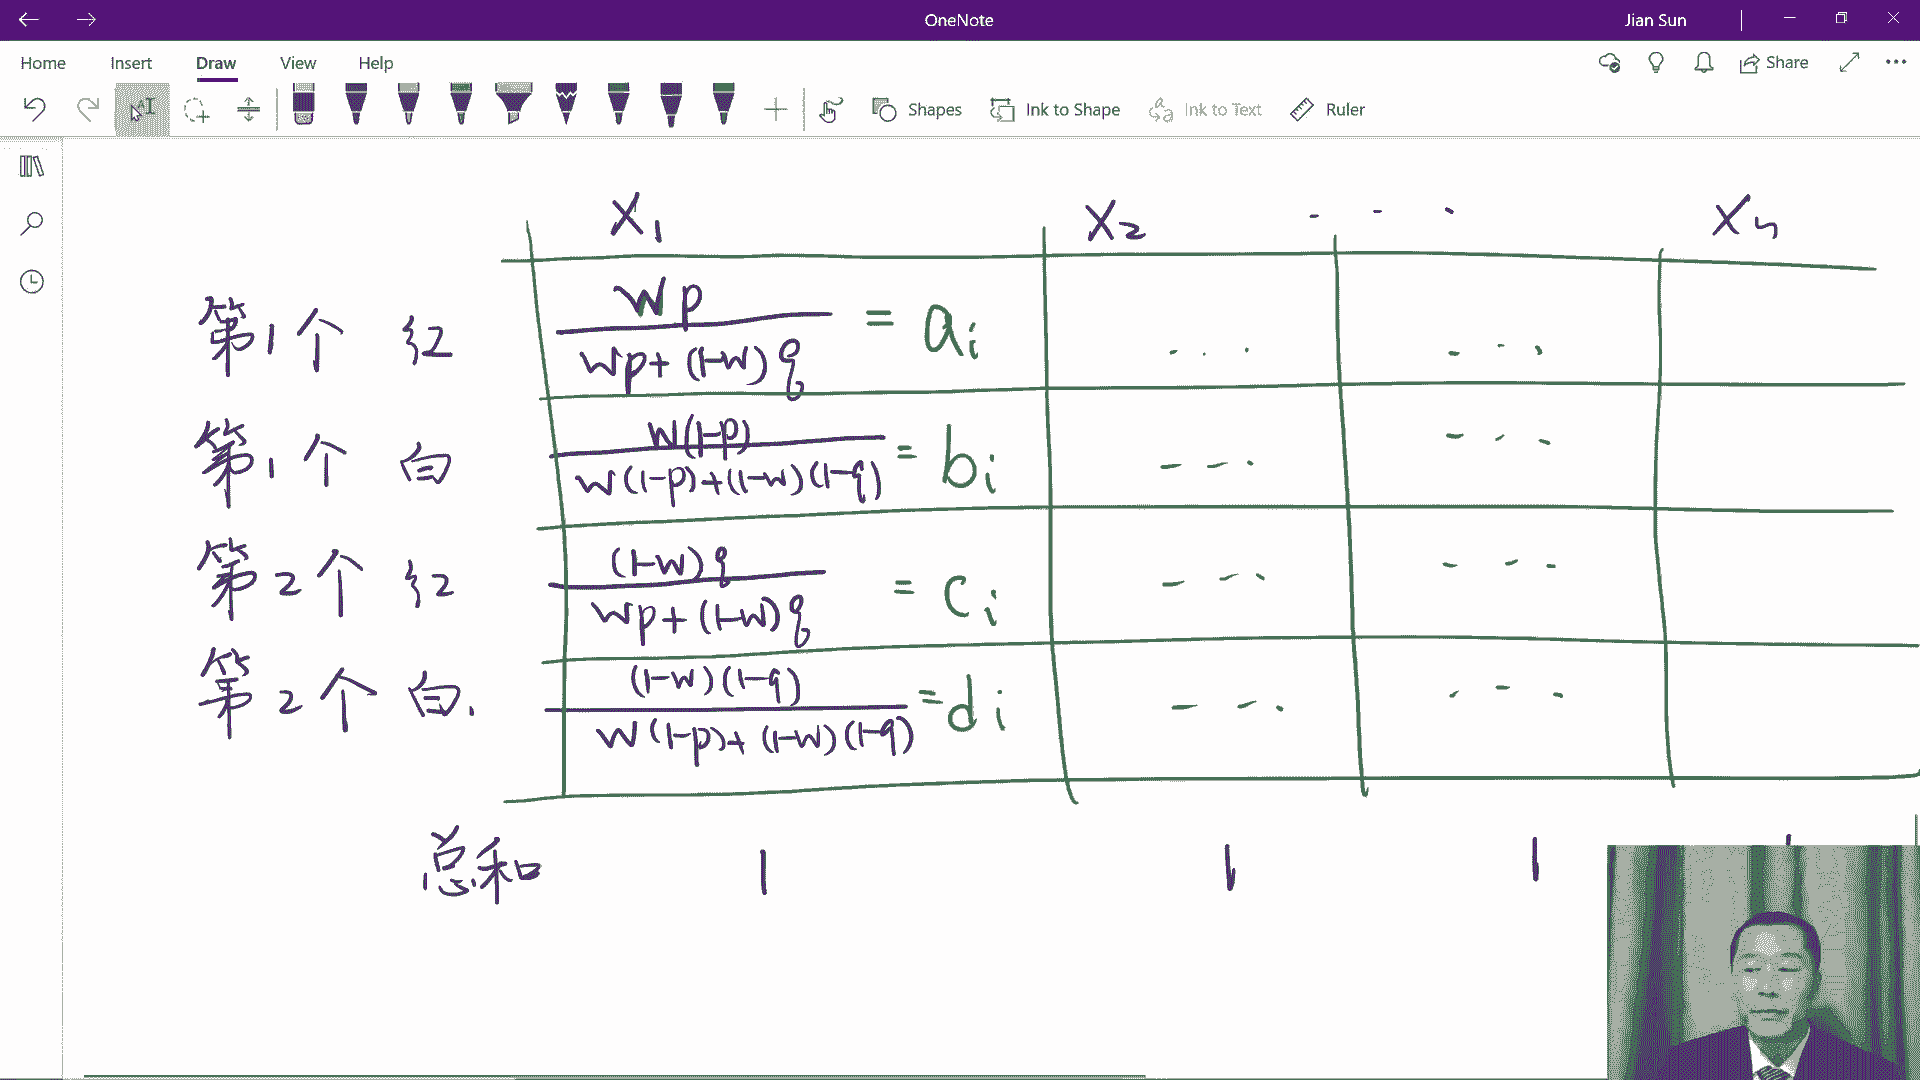 OneNote
Jian Sun
Home Insert Draw View Help
Share
Shapes Ink to Shape Ink to Text Ruler
X₁ X₂ · · · Xₙ
第1个 红 wp / (wp+(1-w)q) = aᵢ · · · · · ·
第1个 白 w(1-p) / (w(1-p)+(1-w)(1-q)) = bᵢ · · · · · ·
第2个 红 (1-w)q / (wp+(1-w)q) = cᵢ · · · · · ·
第2个 白. (1-w)(1-q) / (w(1-p)+(1-w)(1-q)) = dᵢ · · · · · ·
总和 1 1 1